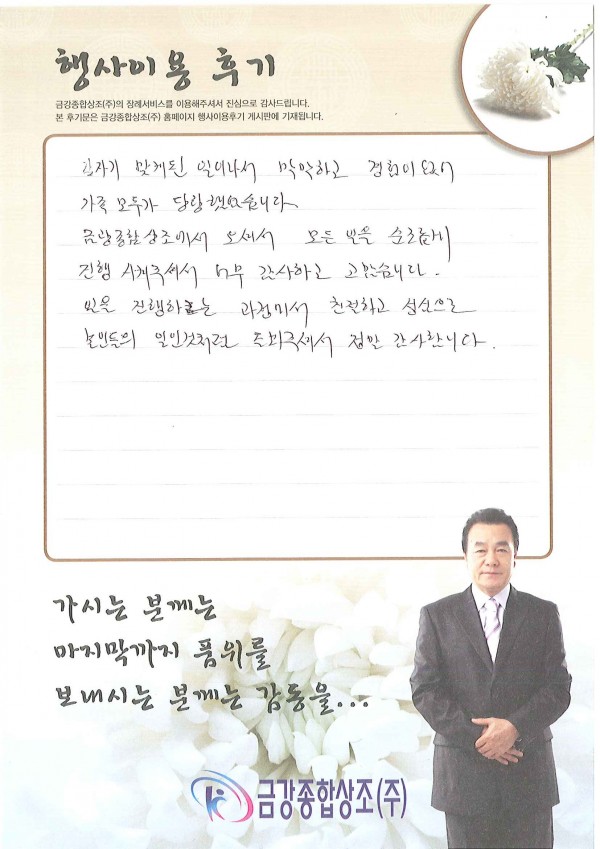 행사이용 후기
금강종합상조(주)의 장례서비스를 이용해주셔서 진심으로 감사드립니다.
본 후기문은 금강종합상조(주) 홈페이지 행사이용후기 게시판에 기재됩니다.
갑자기 맞게된 일이라서 막막하고 경험이 없어
가족 모두가 당황했었습니다
금강종합상조에서 오셔서 모든 일을 순조롭게
진행 시켜주셔서 너무 감사하고 고맙습니다.
일을 진행하는 과정에서 친절하고 성심으로
본인들의 일인것처럼 도와주셔서 정말 감사합니다.
가시는 분께는
마지막까지 품위를
보내시는 분께는 감동을...
금강종합상조(주)